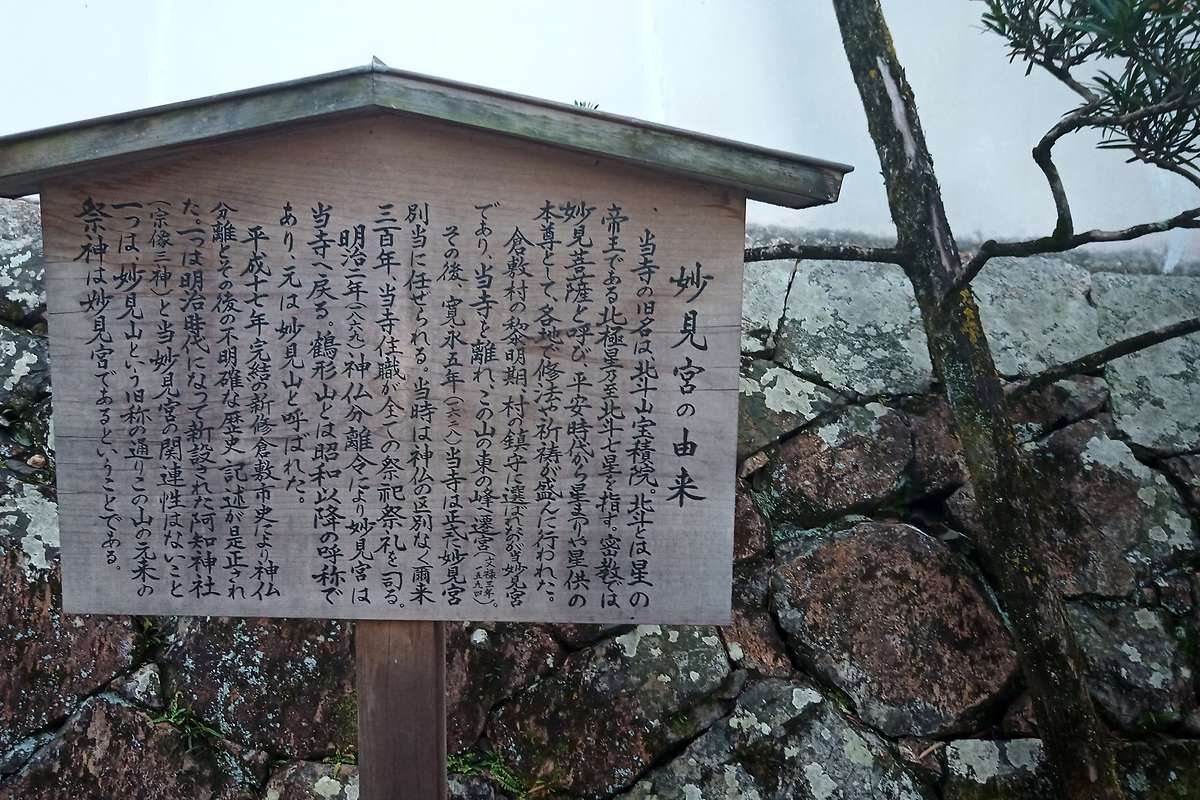 妙見宮の由来
当寺の旧名は、北斗山宝積院。北斗とは星の
帝王である北極星乃至北斗七星を指す。密教では
妙見菩薩と呼び、平安時代から星売りや星供の
本尊として、各地で修法や祈祷が盛んに行われた。
倉敷村の黎明期、村の鎮守に選ばれたのが当妙見宮
であり、当寺を離れ、この山の東の峰へ遷宮(文禄三年一五九四)。
その後、寛永五年(一六二八)当寺は正式に妙見宮
別当に任ぜられる。当時は神仏の区別なく爾来
三百年、当寺住職が全ての祭祀祭礼を司る。
明治二年(一八六九)神仏分離令により妙見宮は
当寺へ戻る。鶴形山とは昭和以降の呼称で
あり、元は妙見山と呼ばれた。
平成十七年完結の新修倉敷市史により神仏
分離とその後の不明確な歴史、記述が是正され
た。一つは明治時代になって新設された阿知神社
(宗像三神)と当妙見宮の関連性はないこと
一つは、妙見山という旧称の通りこの山の元来の
祭神は妙見宮であるということである。